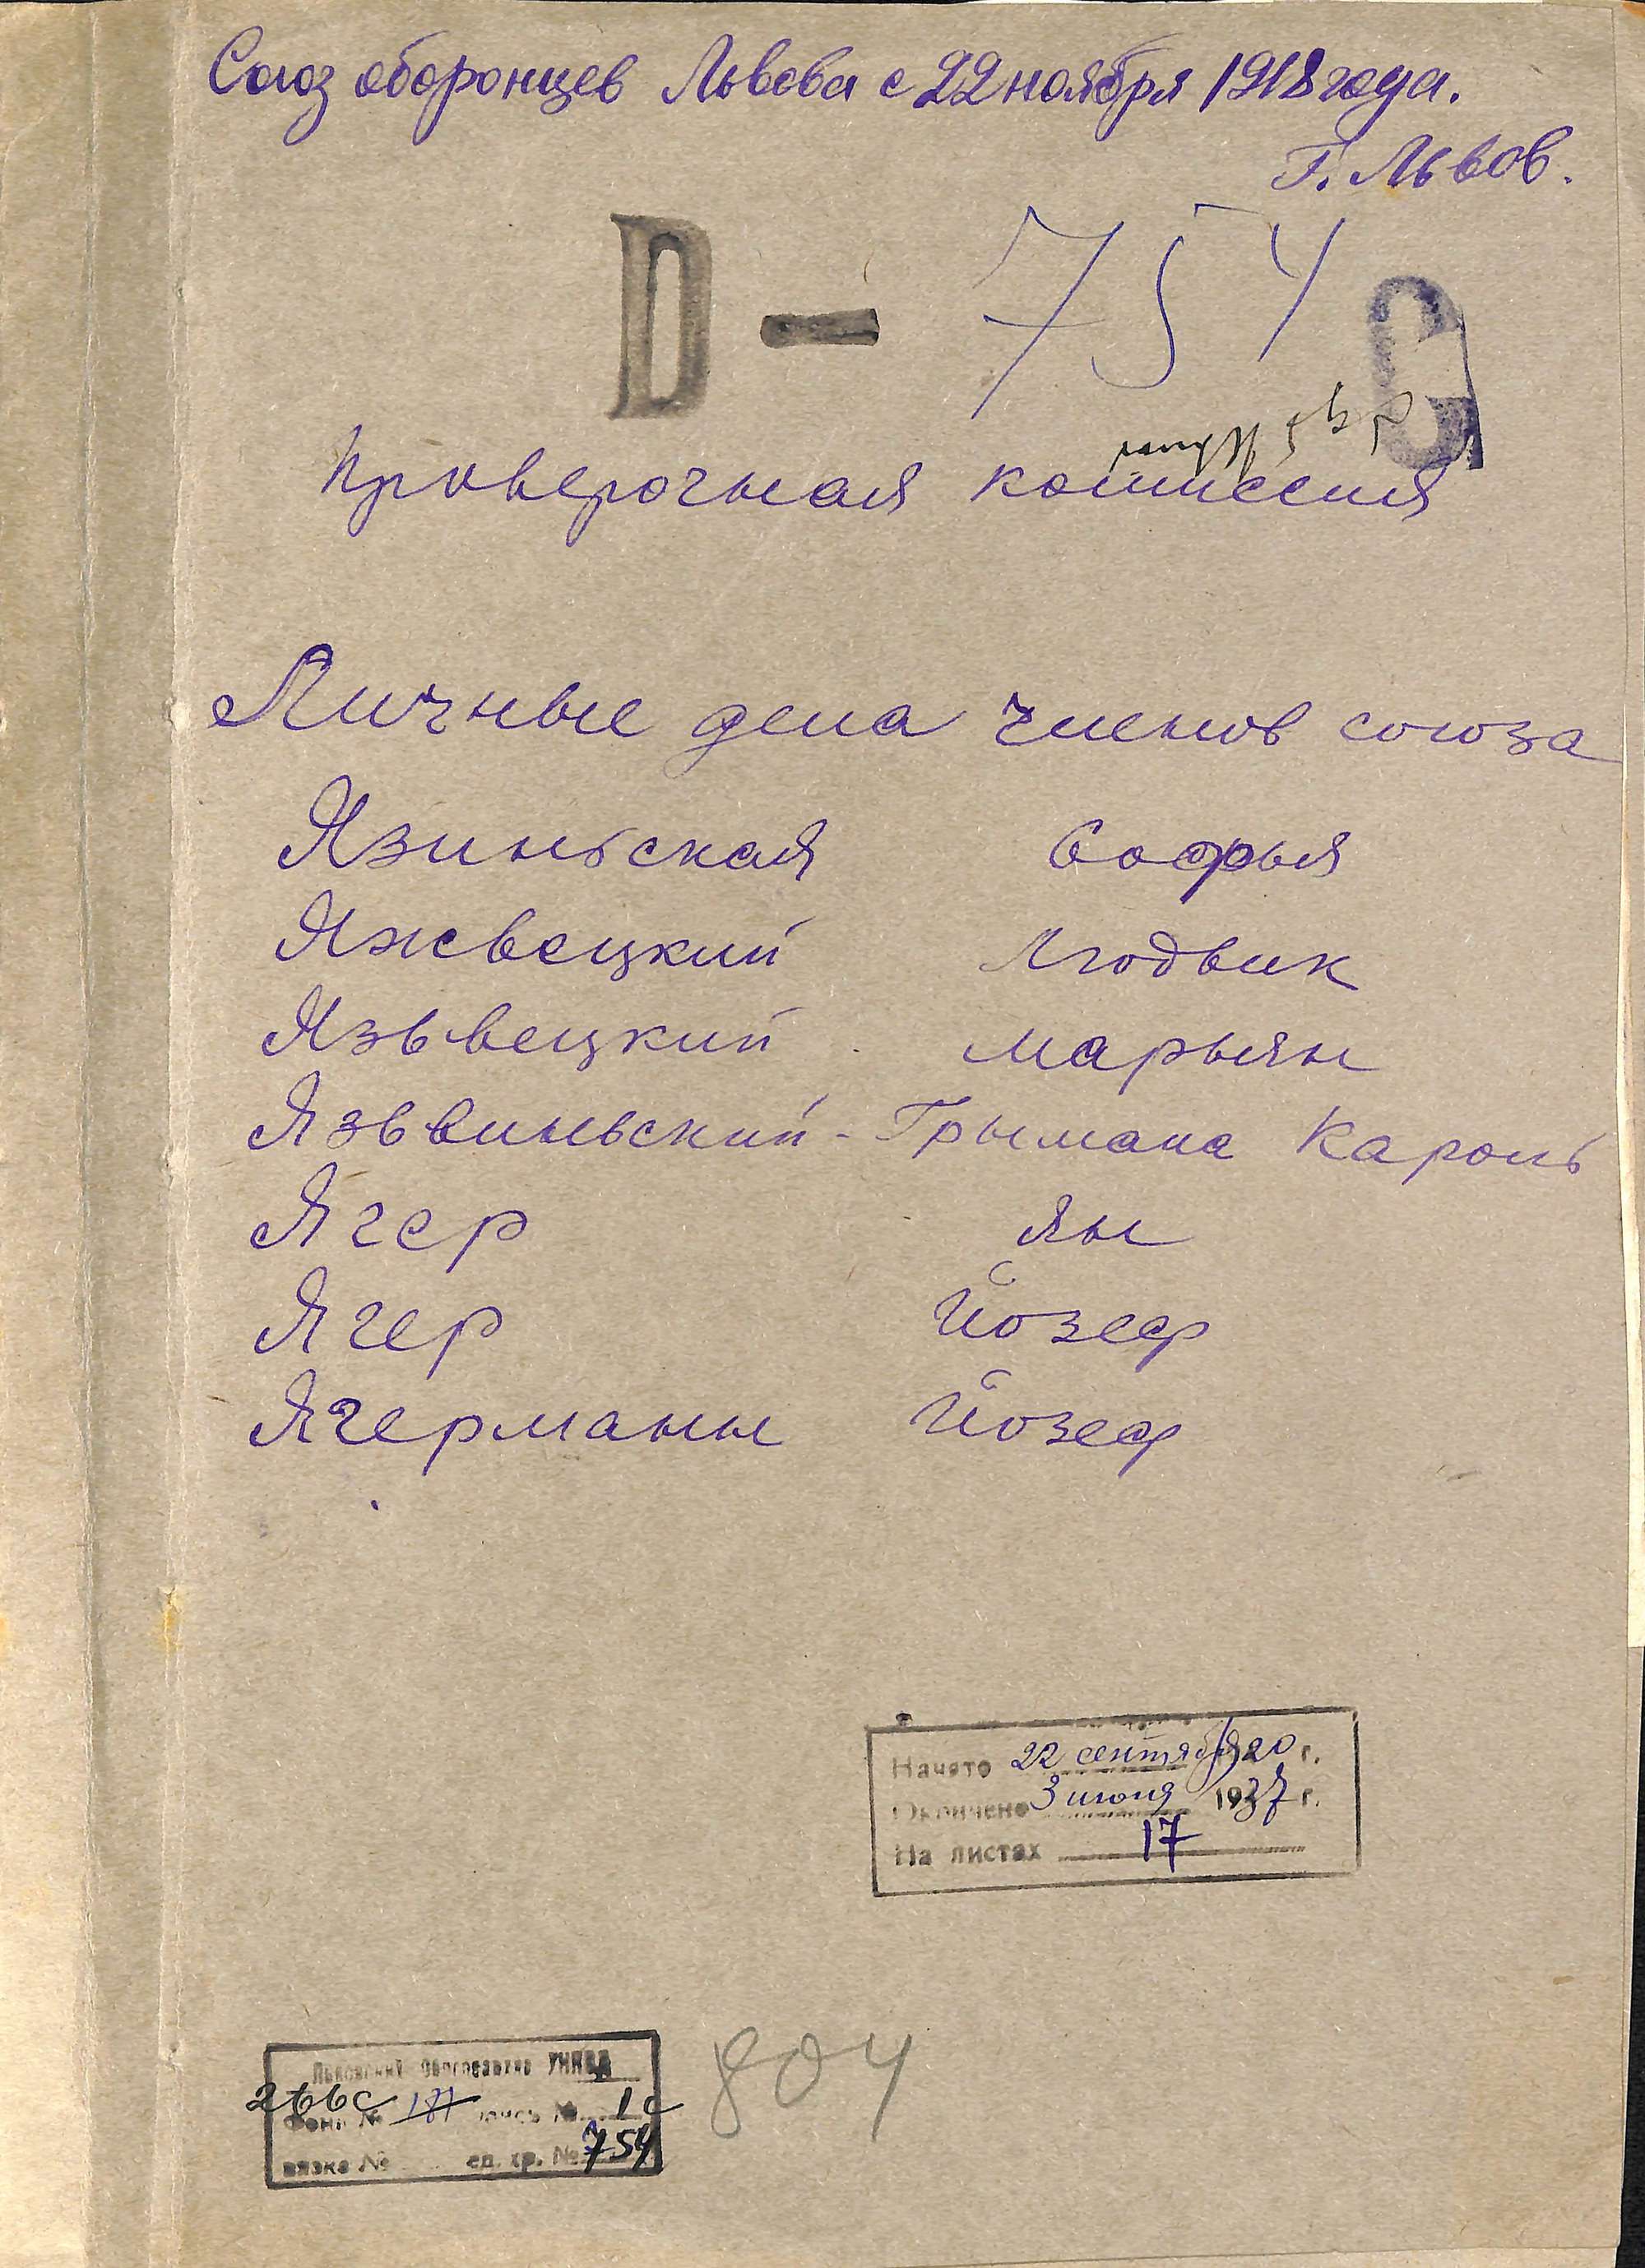 Союз оборонцев Львова с 22 ноября 1918 года.
Г. Львов.
D — 754
Проверочная комиссия
Личные дела членов союза
Язиньская Софья
Яжвецкий Людвик
Язьвецкий Марьян
Язьвиньский - Грымана Кароль
Ягер Ян
Ягер Йозеф
Ягерманн Йозеф
Начато 22 сентября 1920 г.
Окончено 3 июня 1937 г.
На листах 17
Львовский Облгосархив УНКВД
266с
Фонд № 181 опись № 1с
вязка № ед. хр. № 754
804